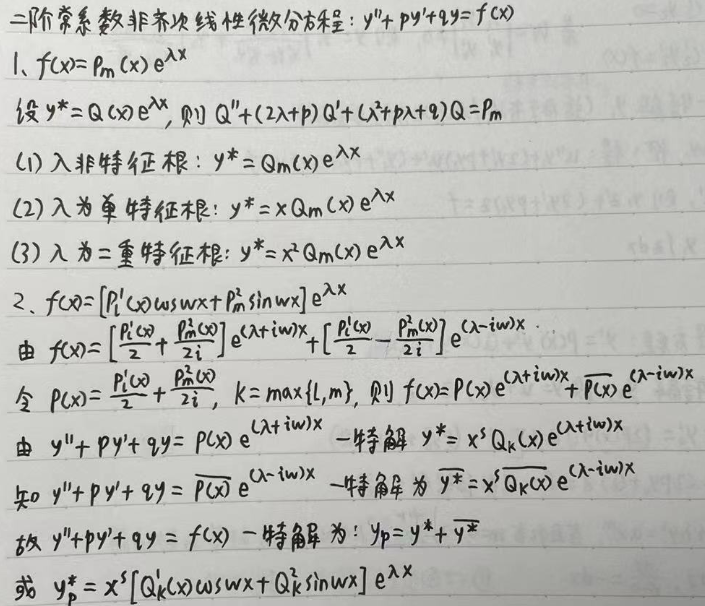 二阶常系数非齐次线性微分方程: y''+py'+qy=f(x)
1、f(x)=Pm(x)e^λx
设 y*=Q(x)e^λx, 则 Q''+(2λ+p)Q'+(λ²+pλ+q)Q=Pm
(1) λ非特征根: y*=Qm(x)e^λx
(2) λ为单特征根: y*=xQm(x)e^λx
(3) λ为二重特征根: y*=x²Qm(x)e^λx
2、f(x)=[P_l^1(x)coswx+P_m^2sinwx]e^λx
由 f(x)=[P_l^1(x)/2+P_m^2(x)/2i]e^(λ+iw)x+[P_l^1(x)/2-P_m^2(x)/2i]e^(λ-iw)x.
令 P(x)=P_l^1(x)/2+P_m^2(x)/2i, K=max{l,m}, 则 f(x)=P(x)e^(λ+iw)x+\overline{P(x)}e^(λ-iw)x
由 y''+py'+qy=P(x)e^(λ+iw)x 一特解 y*=x^sQ_k(x)e^(λ+iw)x
知 y''+py'+qy=\overline{P(x)}e^(λ-iw)x 一特解为 \overline{y*}=x^s\overline{Q_k(x)}e^(λ-iw)x
故 y''+py'+qy=f(x) 一特解为: y_p=y*+\overline{y*}
或 y_p^*=x^s[Q_k^1(x)coswx+Q_k^2sinwx]e^λx